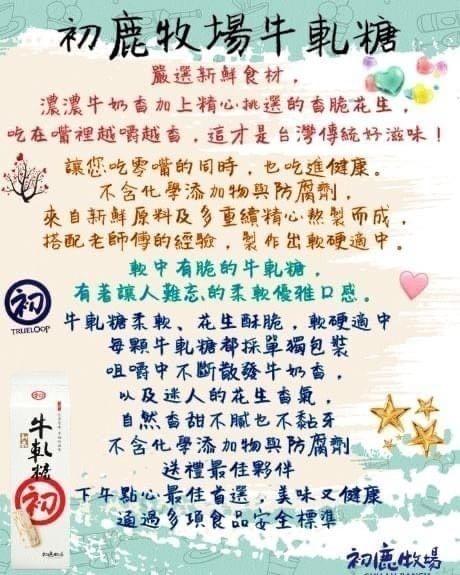 初鹿牧場牛軋糖
嚴選新鮮食材，
濃濃牛奶香加上精心挑選的香脆花生，
吃在嘴裡越嚼越香，這才是台灣傳統好滋味！
讓您吃零嘴的同時，也吃進健康。
不含化學添加物與防腐劑，
來自新鮮原料及多重續精心熬製而成，
搭配老師傅的經驗，製作出軟硬適中。
軟中有脆的牛軋糖，
有著讓人難忘的柔軟優雅口感。
初
TRUELOOP
牛軋糖柔軟、花生酥脆，軟硬適中
每顆牛軋糖都採單獨包裝
咀嚼中不斷散發牛奶香，
以及迷人的花生香氣，
自然香甜不膩也不黏牙
不含化學添加物與防腐劑
送禮最佳夥伴
下午點心最佳首選，美味又健康
通過多項食品安全標準
牛軋糖
初
初鹿牧場